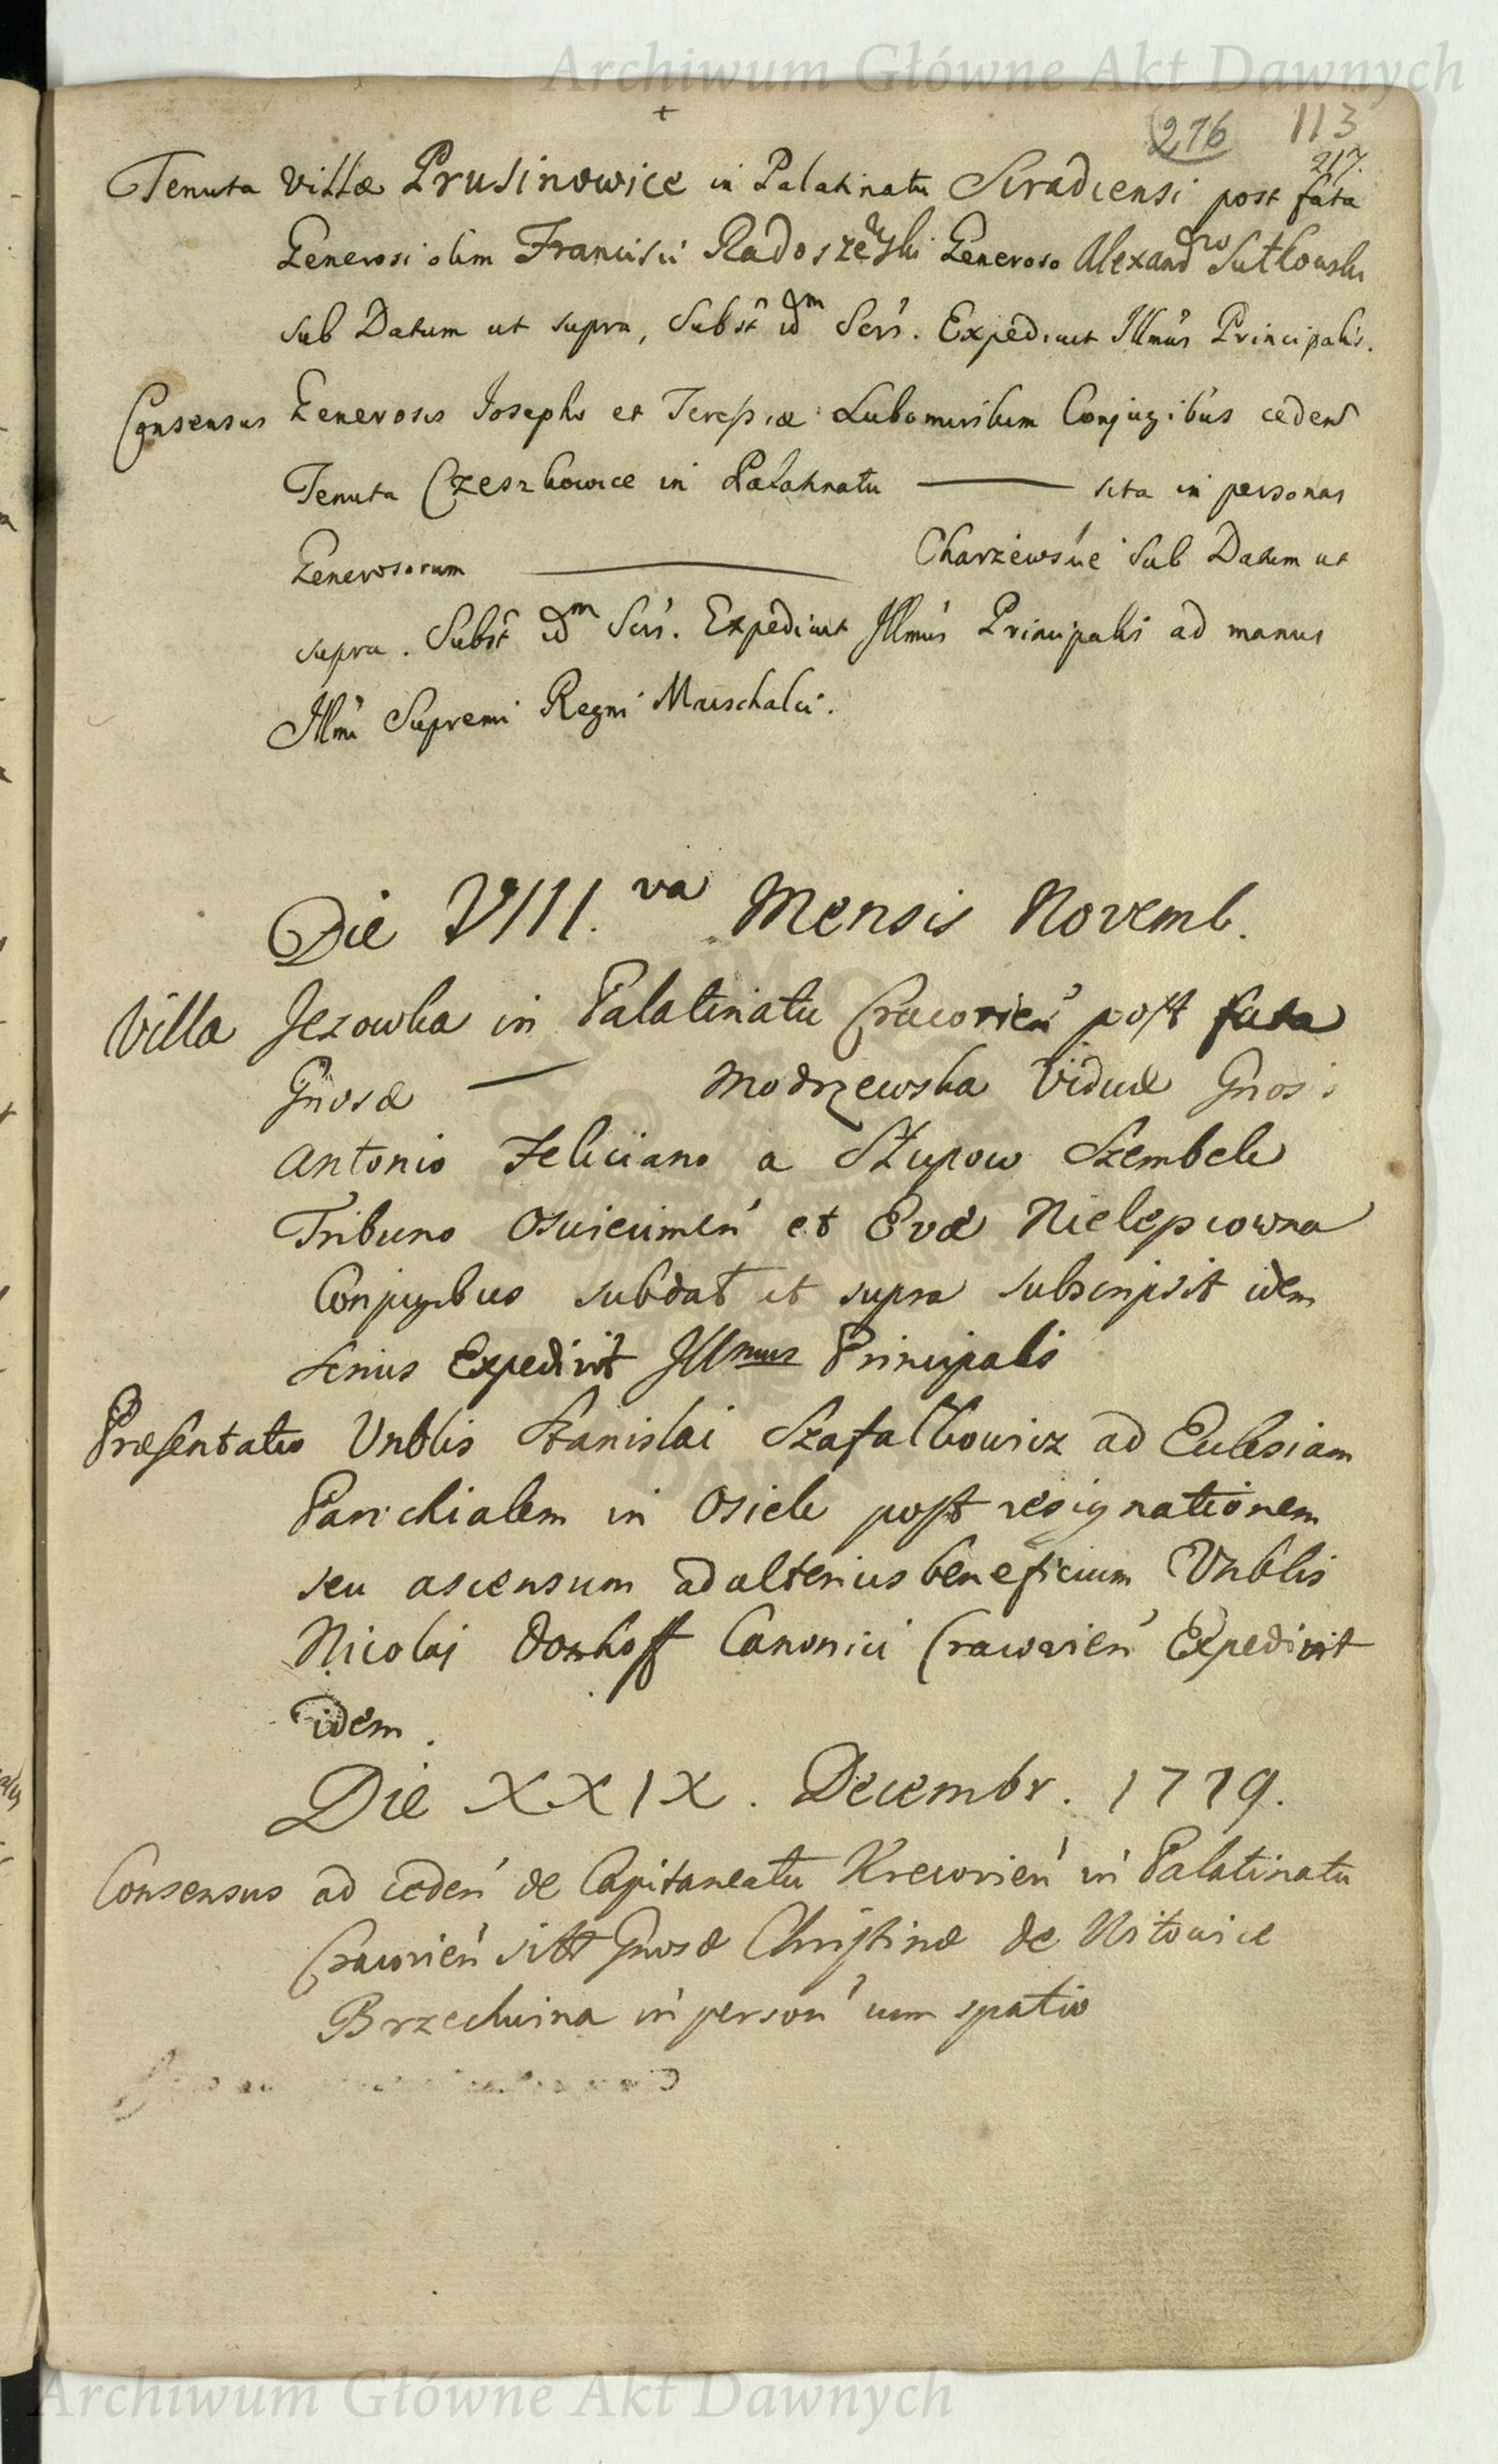 Archiwum Główne Akt Dawnych
276 113
217.
Tenuta Villæ Prusinowice in Palatinatu Siradiensi post fata
Generosi olim Francisci Radoszewski Generoso Alexandro Sułkowski
sub Datum ut supra, Subst idm Sers. Expedivit Illmus Principalis.
Consensus Generosis Josepho et Teressiæ Lubomirskim Conjugibus cedend
Tenuta Czeszkowice in Palatinatu — sita in personas
Generosorum — Charzewskie sub Datum ut
supra. Subst idm Sers. Expedivit Illmus Principalis ad manus
Illmi Supremi Regni Marschalci.
Die VIII.va Mensis Novemb.
Villa Jezowka in Palatinatu Cracovien post fata
Gnosæ — Modrzewska Viduæ Gnosi
Antonio Feliciano a Słupow Szembek
Tribuno Osviecimen et Evæ Nielepcowna
Conjugibus subdat ut supra subscripsit idem
Serius Expedivit Illmus Principalis
Præsentatio Vnblis Stanislai Szafalkowicz ad Eclesiam
Parochialem in Osiek post resignationem
seu ascensum ad alterius beneficium Vnblis
Nicolaj Donhoff Canonici Cracovien Expedivit
idem.
Die XXIX. Decembr. 1719.
Consensus ad ceden de Capitaneatu Krzeczovien in Palatinatu
Cracovien sitt Gnosæ Christinæ de Witowice
Brzechwina in person cum spatio
Archiwum Główne Akt Dawnych